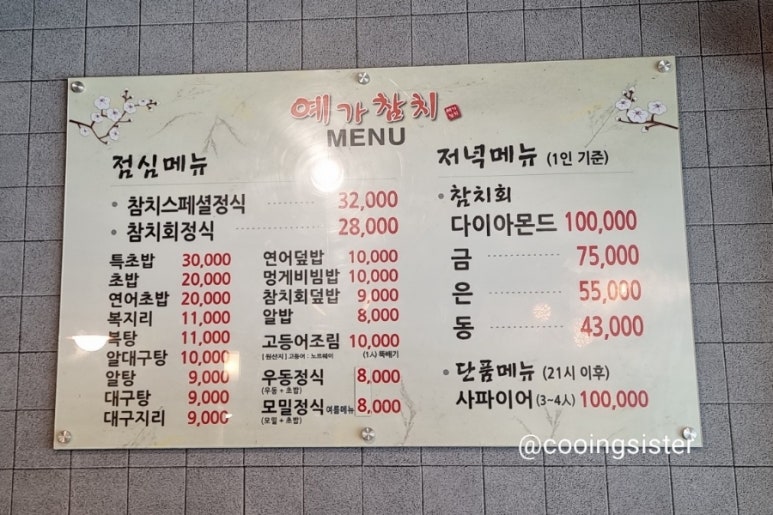 예가참치
MENU
점심메뉴
• 참치스페셜정식 32,000
• 참치회정식 28,000
특초밥 30,000
초밥 20,000
연어초밥 20,000
복지리 11,000
복탕 11,000
알대구탕 10,000
알탕 9,000
대구탕 9,000
대구지리 9,000
연어덮밥 10,000
멍게비빔밥 10,000
참치회덮밥 9,000
알밥 8,000
고등어조림 10,000
[원산지] 고등어 : 노르웨이 (1시) 뚝배기
우동정식 8,000
(우동 + 초밥)
모밀정식 여름메뉴 8,000
(모밀 + 초밥)
저녁메뉴 (1인 기준)
• 참치회
다이아몬드 100,000
금 75,000
은 55,000
동 43,000
• 단품메뉴 (21시 이후)
사파이어 (3~4人) 100,000
@cooingsister